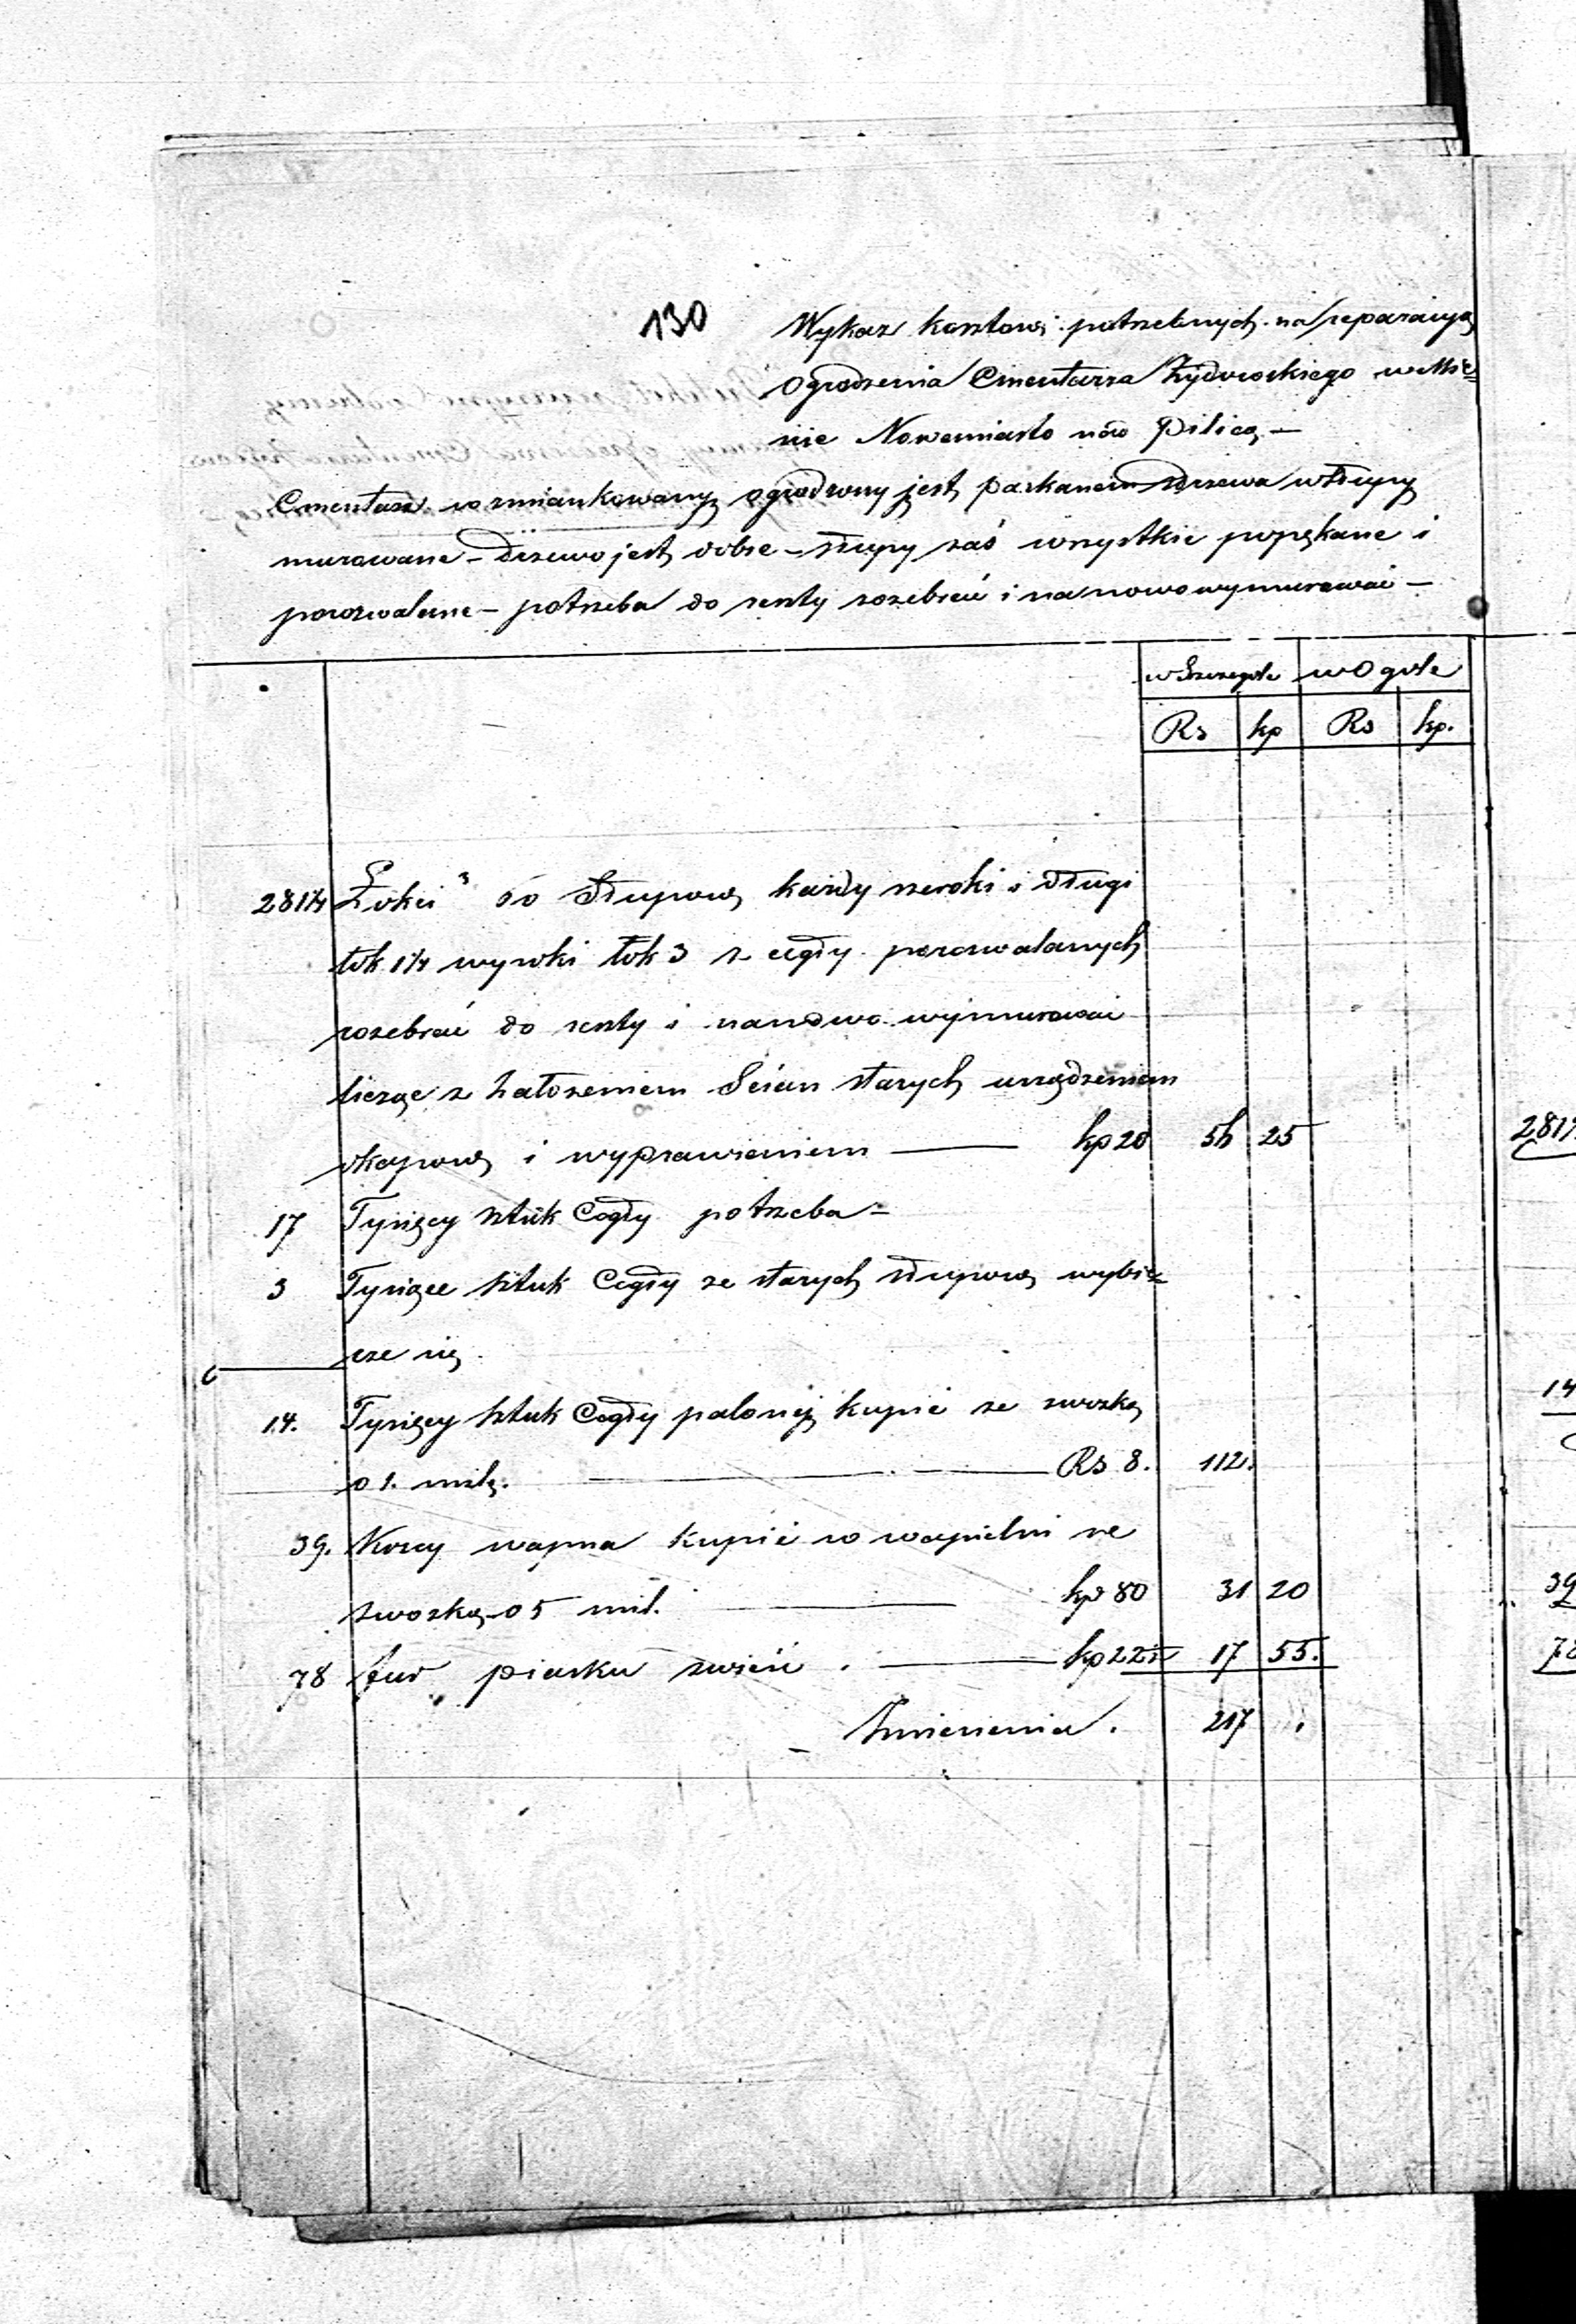 130
Wykaz kosztow potrzebnych na reparacyą
Ogrodzenia Cmentarza Żydowskiego w Mie=
scie Nowemiasto nad Pilicą —
Cmentarz wzmiankowany ogrodzony jest parkanem z drzewa w słupy
murowane – drzewo jest dobre – słupy zaś wszystkie popękane i
porozwalane – potrzeba do reszty rozebrać i na nowo wymurować –
w Szczegole w Ogole
Rs kp Rs kp.
281¼ Łokci 3 60 Słupow każdy szeroki i długi
łok 1¼ wysoki łok 3 z cegły porozwalanych
rozebrać do reszty i nanowo wymurować
licząc z założeniem Ścian starych urządzeniem
okapow i wyprawieniem — kp 20 56 25
17 Tysięcy sztuk Cegły potrzeba =
3 Tysiące sztuk Cegły ze starych słupow wybie=
rze się
14. Tysięcy sztuk Cegły palonej kupić ze zwozką
o 1. milę. — Rs 8. 112.
39. Korcy wapna kupić w wapielni ze
zwozką o 5 mil. — kp 80 31 20
78 fur piasku zwieść . — kp 22½ 17 55.
Zniesienia . 217 .
281¼
14
39
78